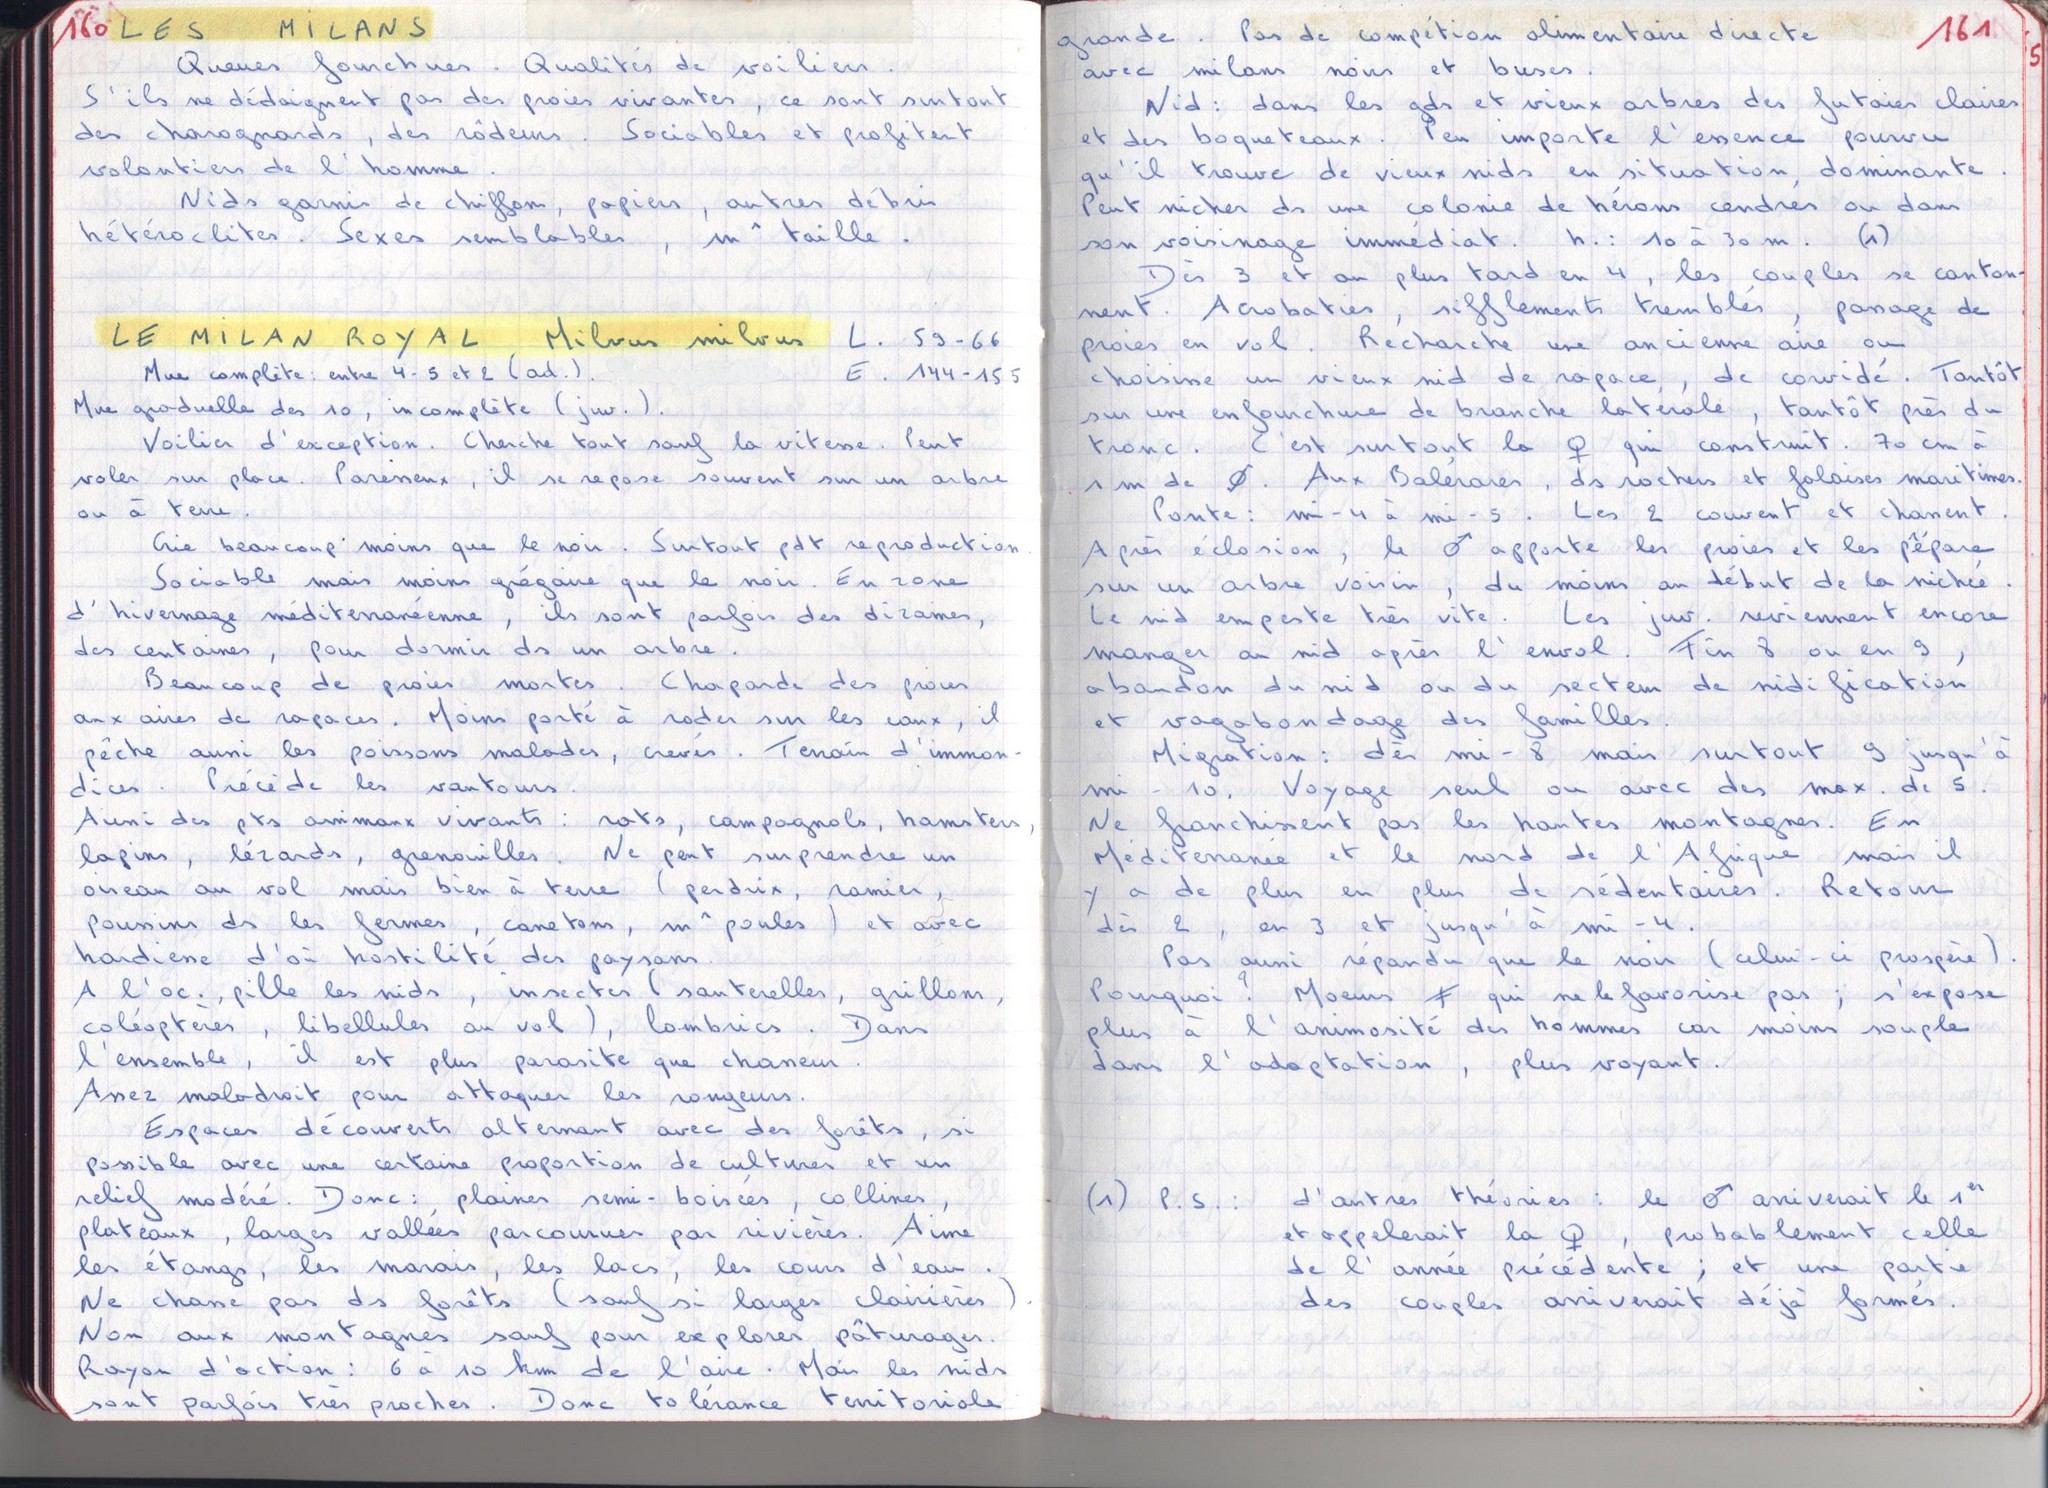 160 LES MILANS
Queues fourchues. Qualités de voiliers.
S'ils ne dédaignent pas des proies vivantes, ce sont surtout
des charognards, des rôdeurs. Sociables et profitent
volontiers de l'homme.
Nids garnis de chiffons, papiers, autres débris
hétéroclites. Sexes semblables, m^ taille.
LE MILAN ROYAL Milvus milvus L. 59-66
Mue complète: entre 4-5 et 2 (ad.). E. 144-155
Mue graduelle des 10, incomplète (juv.).
Voilier d'exception. Cherche tout sauf la vitesse. Peut
voler sur place. Paresseux, il se repose souvent sur un arbre
ou à terre.
Crie beaucoup moins que le noir. Surtout pdt reproduction.
Sociable mais moins grégaire que le noir. En zone
d'hivernage méditerranéenne, ils sont parfois des dizaines,
des centaines, pour dormir ds un arbre.
Beaucoup de proies mortes. Chaparde des proies
aux aires de rapaces. Moins porté à roder sur les eaux, il
pêche aussi les poissons malades, crevés. Terrain d'immon-
dices. Précède les vautours.
Aussi des pts animaux vivants: rats, campagnols, hamsters,
lapins, lézards, grenouilles. Ne peut surprendre un
oiseau au vol mais bien à terre (perdrix, ramier,
poussins ds les fermes, canetons, m^ poules) et avec
hardiesse d'où hostilité des paysans.
A l'oc., pille les nids, insectes (sauterelles, grillons,
coléoptères, libellules au vol), lombrics. Dans
l'ensemble, il est plus parasite que chasseur.
Assez maladroit pour attaquer les rongeurs.
Espaces découverts alternant avec des forêts, si
possible avec une certaine proportion de cultures et un
relief modéré. Donc: plaines semi-boisées, collines,
plateaux, larges vallées parcourues par rivières. Aime
les étangs, les marais, les lacs, les cours d'eau.
Ne chasse pas ds forêts (sauf si larges clairières).
Non aux montagnes sauf pour explorer pâturages.
Rayon d'action: 6 à 10 km de l'aire. Mais les nids
sont parfois très proches. Donc tolérance territoriale
161
5
grande. Pas de compétion alimentaire directe
avec milans noirs et buses.
Nid: dans les gds et vieux arbres des futaies claires
et des boqueteaux. Peu importe l'essence pourvu
qu'il trouve de vieux nids en situation dominante.
Peut nicher ds une colonie de hérons cendrés ou dans
son voisinage immédiat. h.: 10 à 30 m. (1)
Dès 3 et au plus tard en 4, les couples se canton-
nent. Acrobaties, sifflements tremblés, passage de
proies en vol. Recherche une ancienne aire ou
choisisse un vieux nid de rapace, de corvidé. Tantôt
sur une enfourchure de branche latérale, tantôt près du
tronc. C'est surtout la ♀ qui construit. 70 cm à
1 m de Ø. Aux Baléares, ds rochers et falaises maritimes.
Ponte: mi-4 à mi-5. Les 2 couvent et chassent.
Après éclosion, le ♂ apporte les proies et les prépare
sur un arbre voisin, du moins au début de la nichée.
Le nid empeste très vite. Les juv. reviennent encore
manger au nid après l'envol. Fin 8 ou en 9,
abandon du nid ou du secteur de nidification
et vagabondage des familles.
Migration: dès mi-8 mais surtout 9 jusqu'à
mi-10. Voyage seul ou avec des max. de 5.
Ne franchissent pas les hautes montagnes. En
Méditerranée et le nord de l'Afrique mais il
y a de plus en plus de sédentaires. Retour
dès 2, en 3 et jusqu'à mi-4.
Pas aussi répandu que le noir (celui-ci prospère).
Pourquoi? Moeurs ≠ qui ne le favorise pas; s'expose
plus à l'animosité des hommes car moins souple
dans l'adaptation, plus voyant.
(1) P.S.: d'autres théories: le ♂ arriverait le 1er
et appelerait la ♀, probablement celle
de l'année précédente; et une partie
des couples arriverait déjà formés.